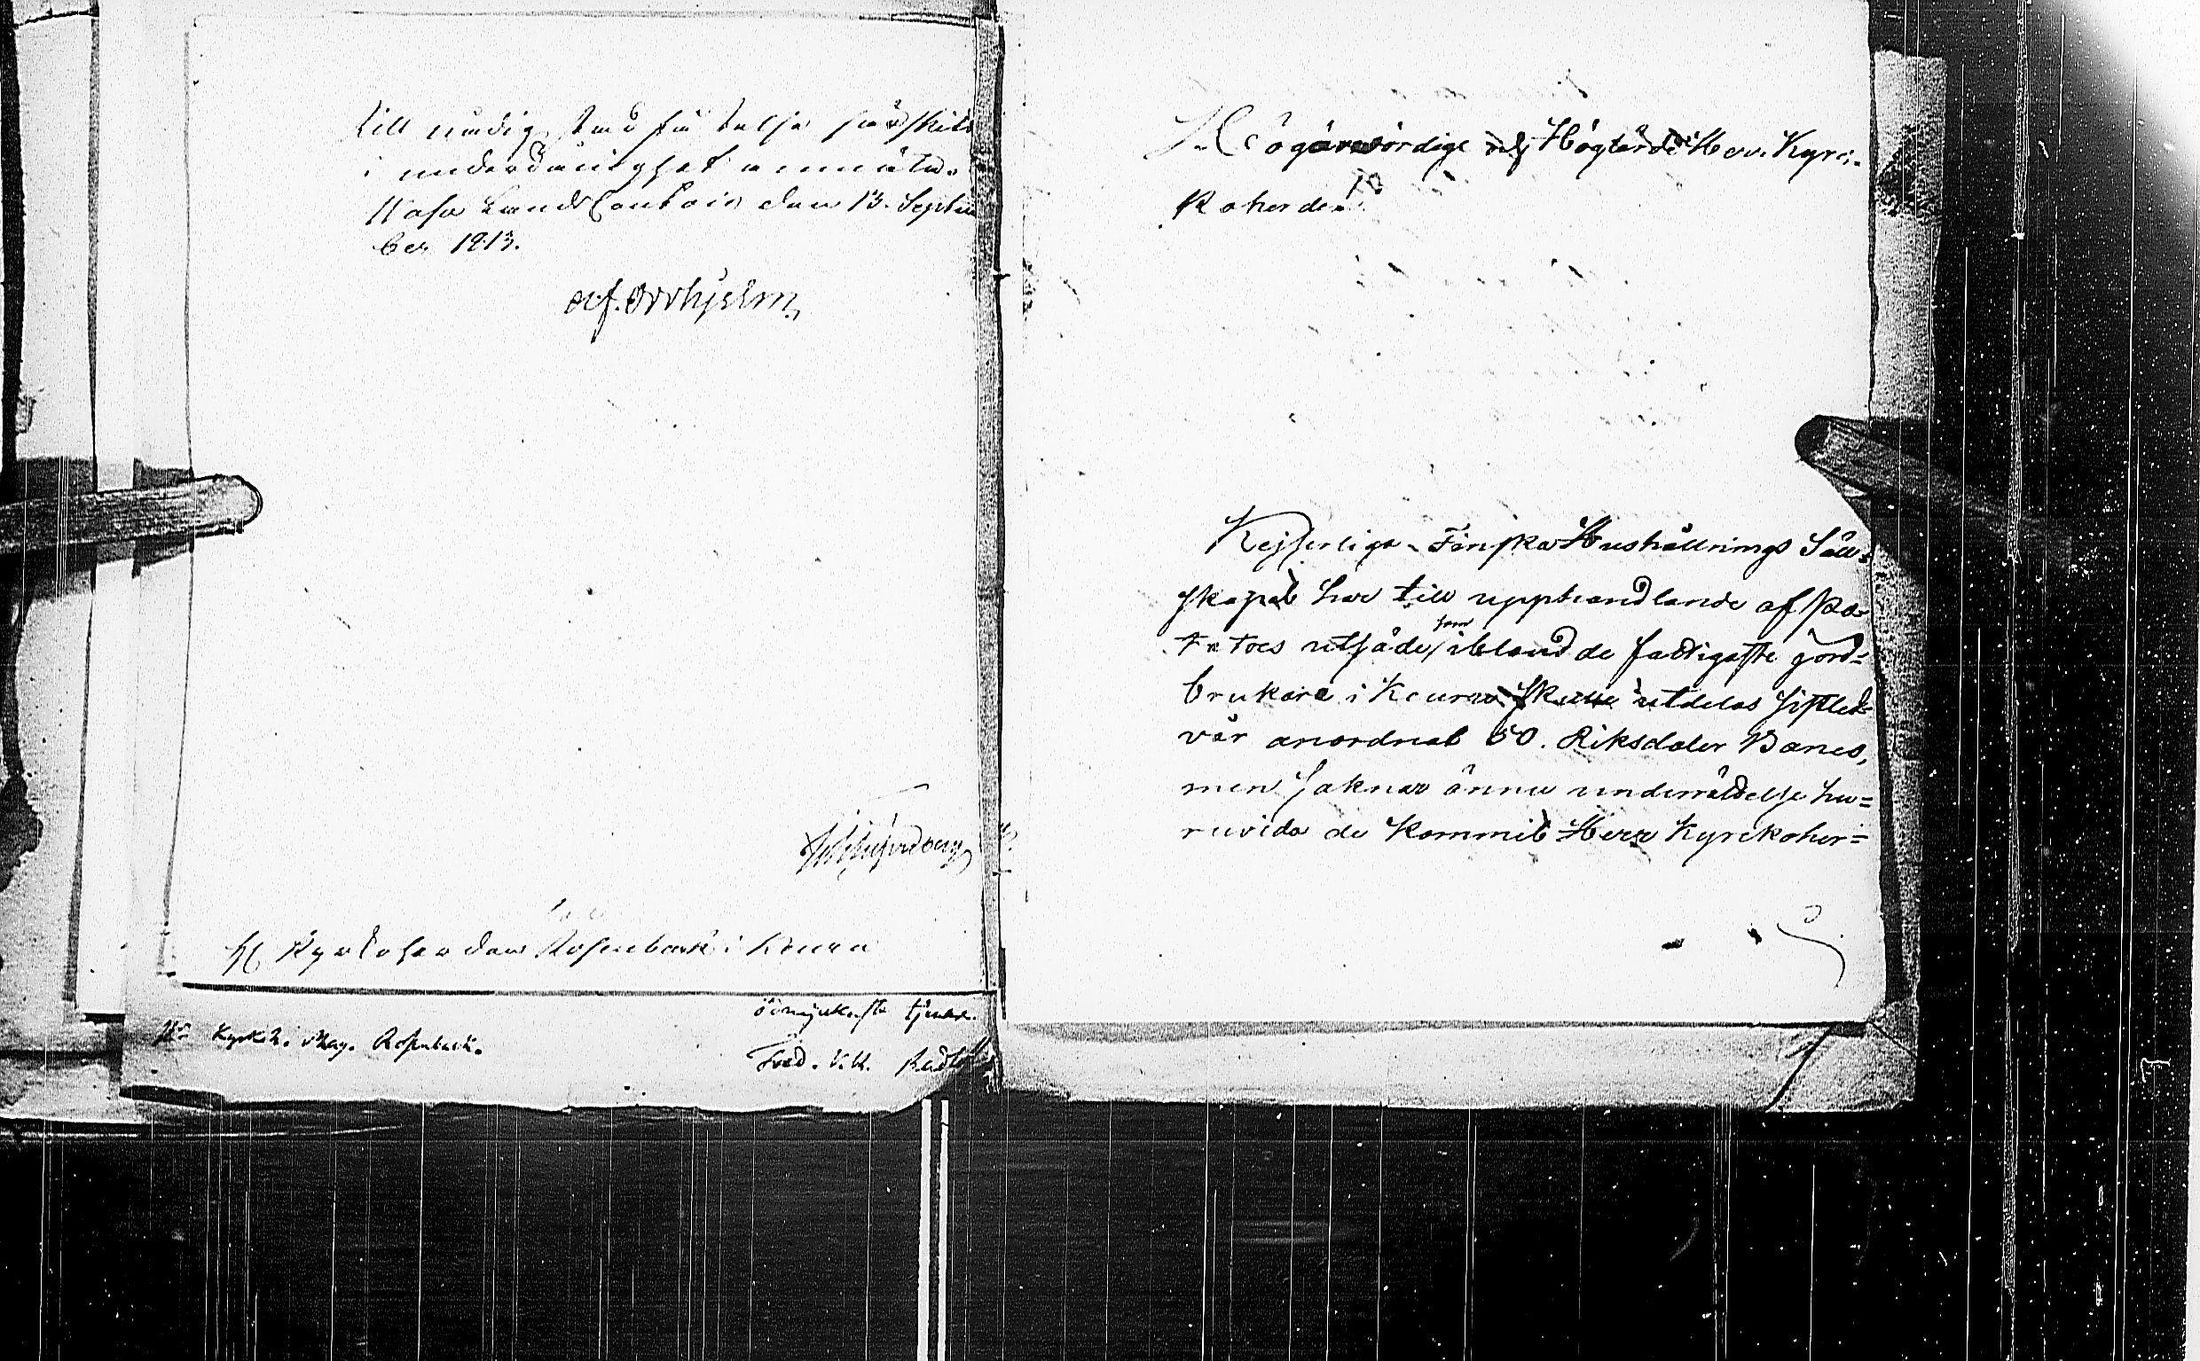 till nådig
i underdånighet anmäla.
Wasa Lands Contoir den 13. Septem
ber 1813.
af. Orrhjelm
H Kyrkoherden Rosenback i Keuru
ödmjukaste tjenare.
Hr Kyrkoh. Mag. Rosenback.
Fred. V. U.
Högärevördige och Höglärde Herr Kyrc-
koherde
Kejserliga Finska Hushållnings Säll=
skapet har till upphandlande af Po
tatoes utsäde, som ibland de fattigaste jord=
brukare i Keuru skulle utdelas sistled=
vår anordnat 50. Riksdaler Banco,
men saknar ännu underrättelse hu=
ruvida de kommit Herr Kyrckoher=